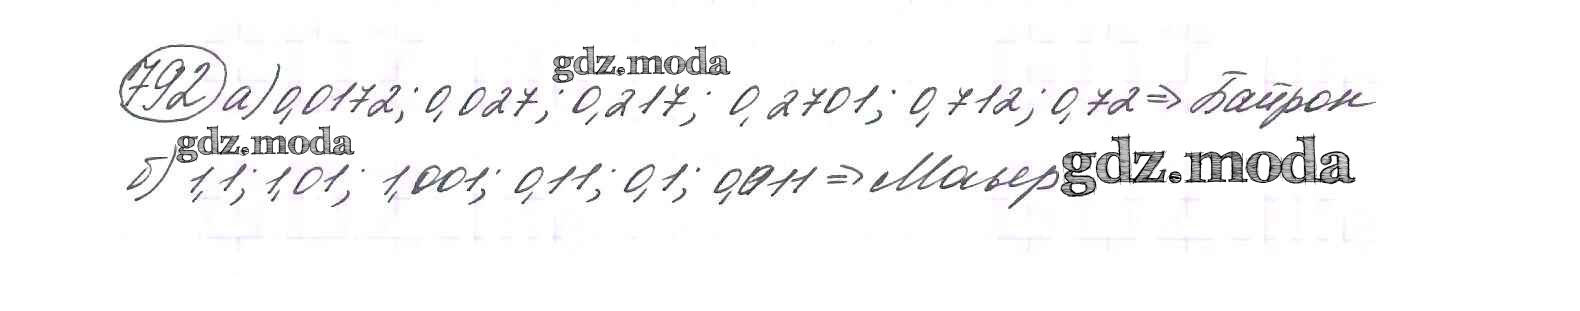 gdz.moda
792 а) 0,0172; 0,027; 0,217; 0,2701; 0,712; 0,72 ⇒ Байрон
gdz.moda
б) 1,1; 1,01; 1,001; 0,11; 0,1; 0,011 ⇒ Мольер
gdz.moda